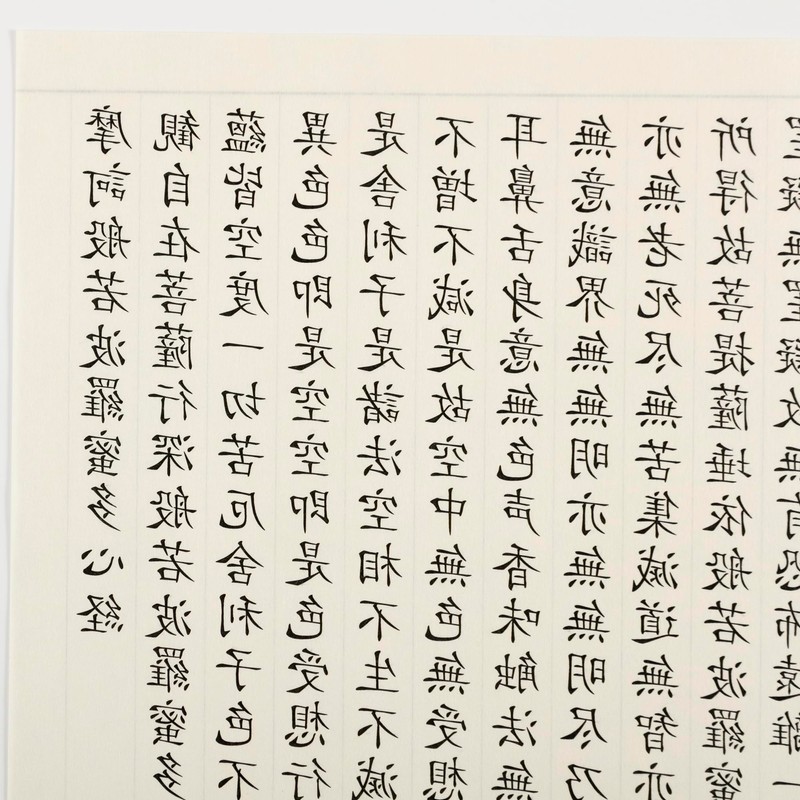 摩訶般若波羅蜜多心経
観自在菩薩行深般若波羅蜜多
蘊皆空度一切苦厄舎利子色不
異色色即是空空即是色受想行
是舎利子是諸法空相不生不滅
不増不減是故空中無色無受想
耳鼻舌身意無色声香味触法無
無意識界無無明亦無無明尽乃
亦無老死尽無苦集滅道無智亦
所得故菩提薩埵依般若波羅蜜
罣礙無罣礙故無有恐怖遠離一